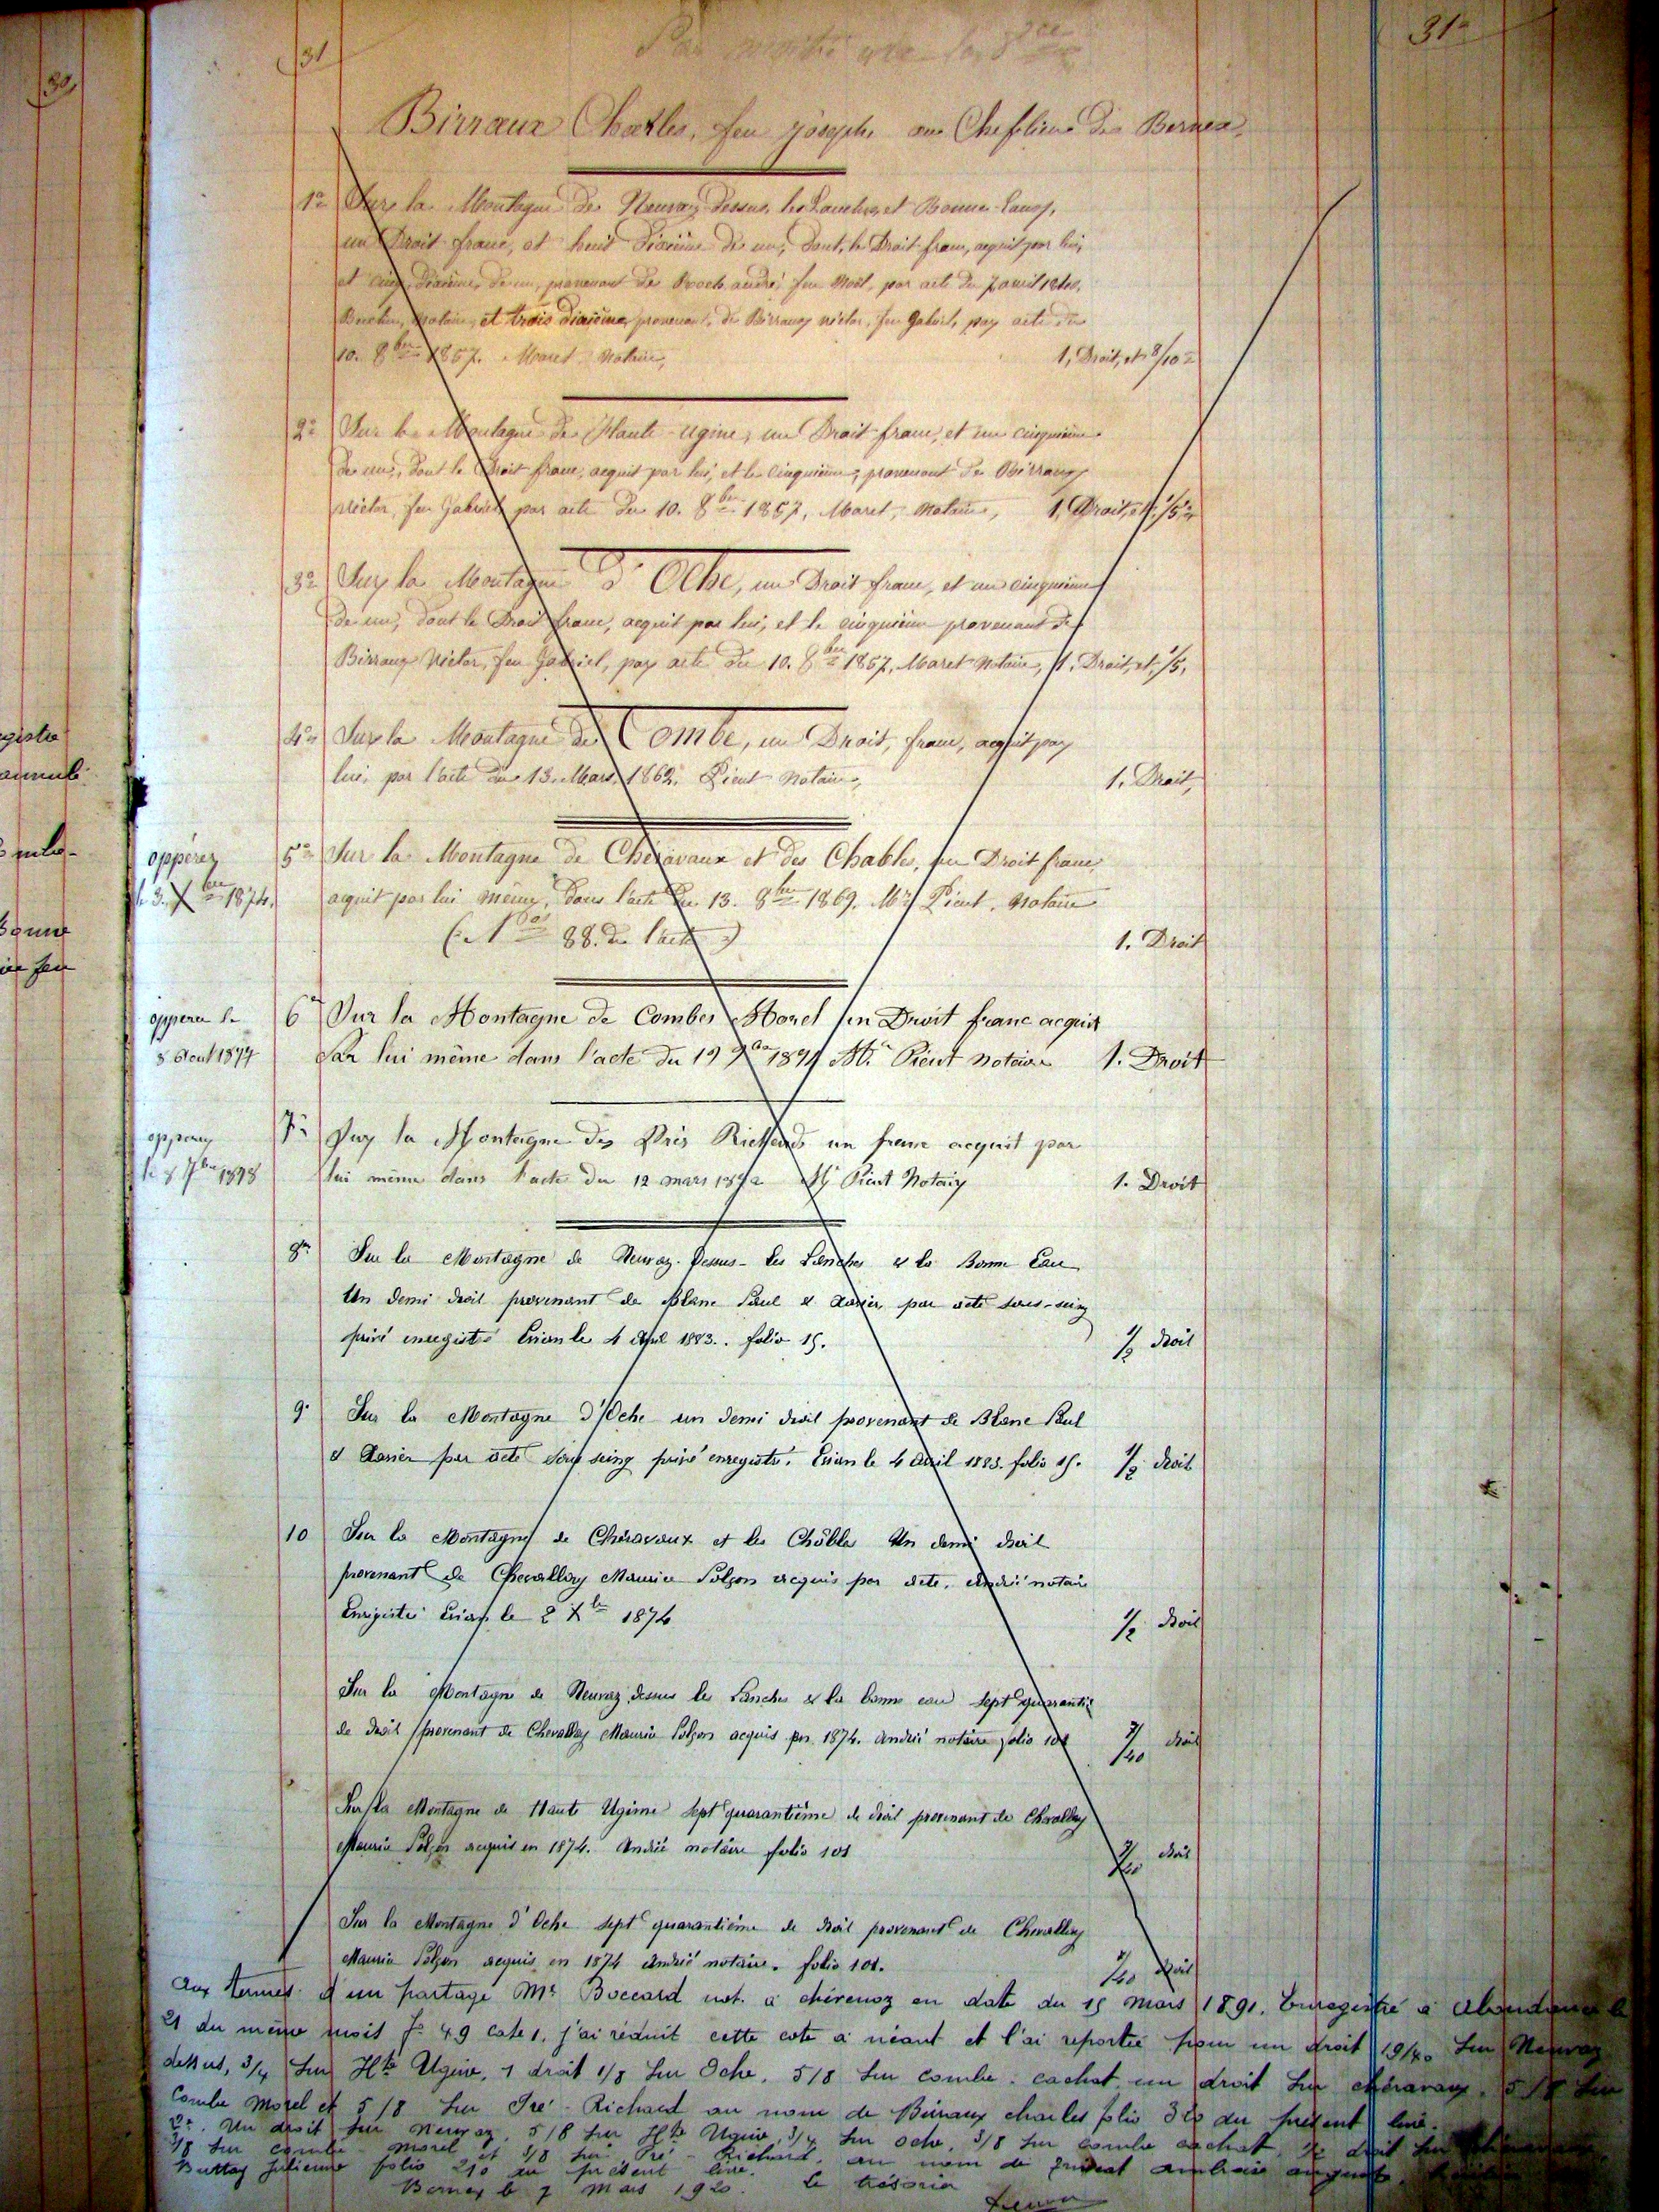 30
31
31
Birraux Charles, feu joseph au Cheflieu de Bernex,
1° Sur la Montagne de Neuvaz Dessus, les Lanches et Bonne Eaux,
un Droit franc, et huit dixième de un, dont le Droit franc, acquit par lui,
et cinq dixième de un, provenant de Roch andré feu Noël, par acte du 7 avril
notaire, et trois dixième provenant, de Birraux victor, feu Gabriel, par acte du
10. 8bre 1857. Maret Notaire, 1, Droit, et 8/10
2° Sur la Montagne de Haute-Ugine, un Droit franc, et un cinquième
de un, dont le Droit franc, acquit par lui, et le cinquième, provenant de Birraux
victor, feu Gabriel par acte du 10. 8bre 1857, Maret, notaire, 1, Droit, et 1/5
3° Sur la Montagne D'Oche, un Droit franc, et un cinquième
de un, dont le Droit franc, acquit par lui, et le cinquième provenant de
Birraux Victor, feu Gabriel, par acte du 10. 8bre 1857, Maret Notaire, 1, Droit, et 1/5,
4° Sur la Montagne de Combe, un Droit, franc, acquit par
lui, par l'acte du 13. Mars 1862. Pieut Notaire, 1. Droit,
oppérez
le 3. Xbre 1874.
5° Sur la Montagne de Chéravaux et des Chables, un Droit franc,
aquit par lui même, dans l'acte du 13. 8bre 1869. Me Pieut. Notaire
88. de l'acte 1. Droit
opperer le
8 Aout 1877
6° Sur la Montagne de Combes Morel un Droit franc acquit
Par lui même dans l'acte du 19 Me Pieut Notaire 1. Droit
opperez
le 8 7bre 1878
7° Sur la Montagne des Près Richards un franc acquit par
lui même dans l'acte du 12 mars Me Pieut Notaire 1. Droit
8° Sur la Montagne de Neuvaz-Dessus-les Lanches & la Bonne Eau
Un demi droit provenant de Blanc Paul & Xavier par acte sous-seing
privé enregistré Evian le 4 Avril 1883.. folio 15. 1/2 droit
9° Sur la Montagne d'Oche un demi droit provenant de Blanc Paul
& Xavier par acte sous seing privé enregistré. Evian le 4 Avril 1883. folio 15. 1/2 droit
10 Sur la Montagne de Chéravaux et les Châbles Un demi droit
provenant de Chevallay Maurice acquis par acte. Andrié notaire
Enregistré Evian le 2 Xbre 1874 1/2 droit
Sur la Montagne de Neuvaz dessus les Lanches & la bonne eau sept quarantième
de droit provenant de Chevallay Maurice acquis en 1874. Andrié notaire folio 101 7/40 droit
Sur la Montagne de Haute Ugine sept quarantième de droit provenant de Chevallay
Maurice acquis en 1874. Andrié notaire folio 101 7/40 droit
Sur la Montagne d'Oche sept quarantième de droit provenant de Chevallay
Maurice acquis en 1874 Andrié notaire. folio 101. 7/40 droit
Aux termes d'un partage Me Boccard not. à chévenoz en date du 15 mars 1891. Enregistré à Abondance le
21 du même mois f° 49 case 1, j'ai réduit cette cote à néant et l'ai reportée pour un droit 19/40 sur Neuvaz
dessus, 3/4 sur Hte Ugine, 1 droit 1/8 sur Oche, 5/8 sur combe-cachat, un droit sur chéravaux, 5/8 sur
Combe Morel et 5/8 sur Pré-Richard au nom de Birraux charles folio du présent livre.
2°. Un droit sur Neuvaz, 5/8 sur Hte Ugine, 3/4 sur Oche, 3/8 sur combe cachat, 1/2 droit sur Chéravaux,
3/8 sur combe-morel et 3/8 sur Pré-Richard, au nom de
Buttay Julienne folio 210 du présent livre.
Bernex le 7 mars 1920. le trésorier